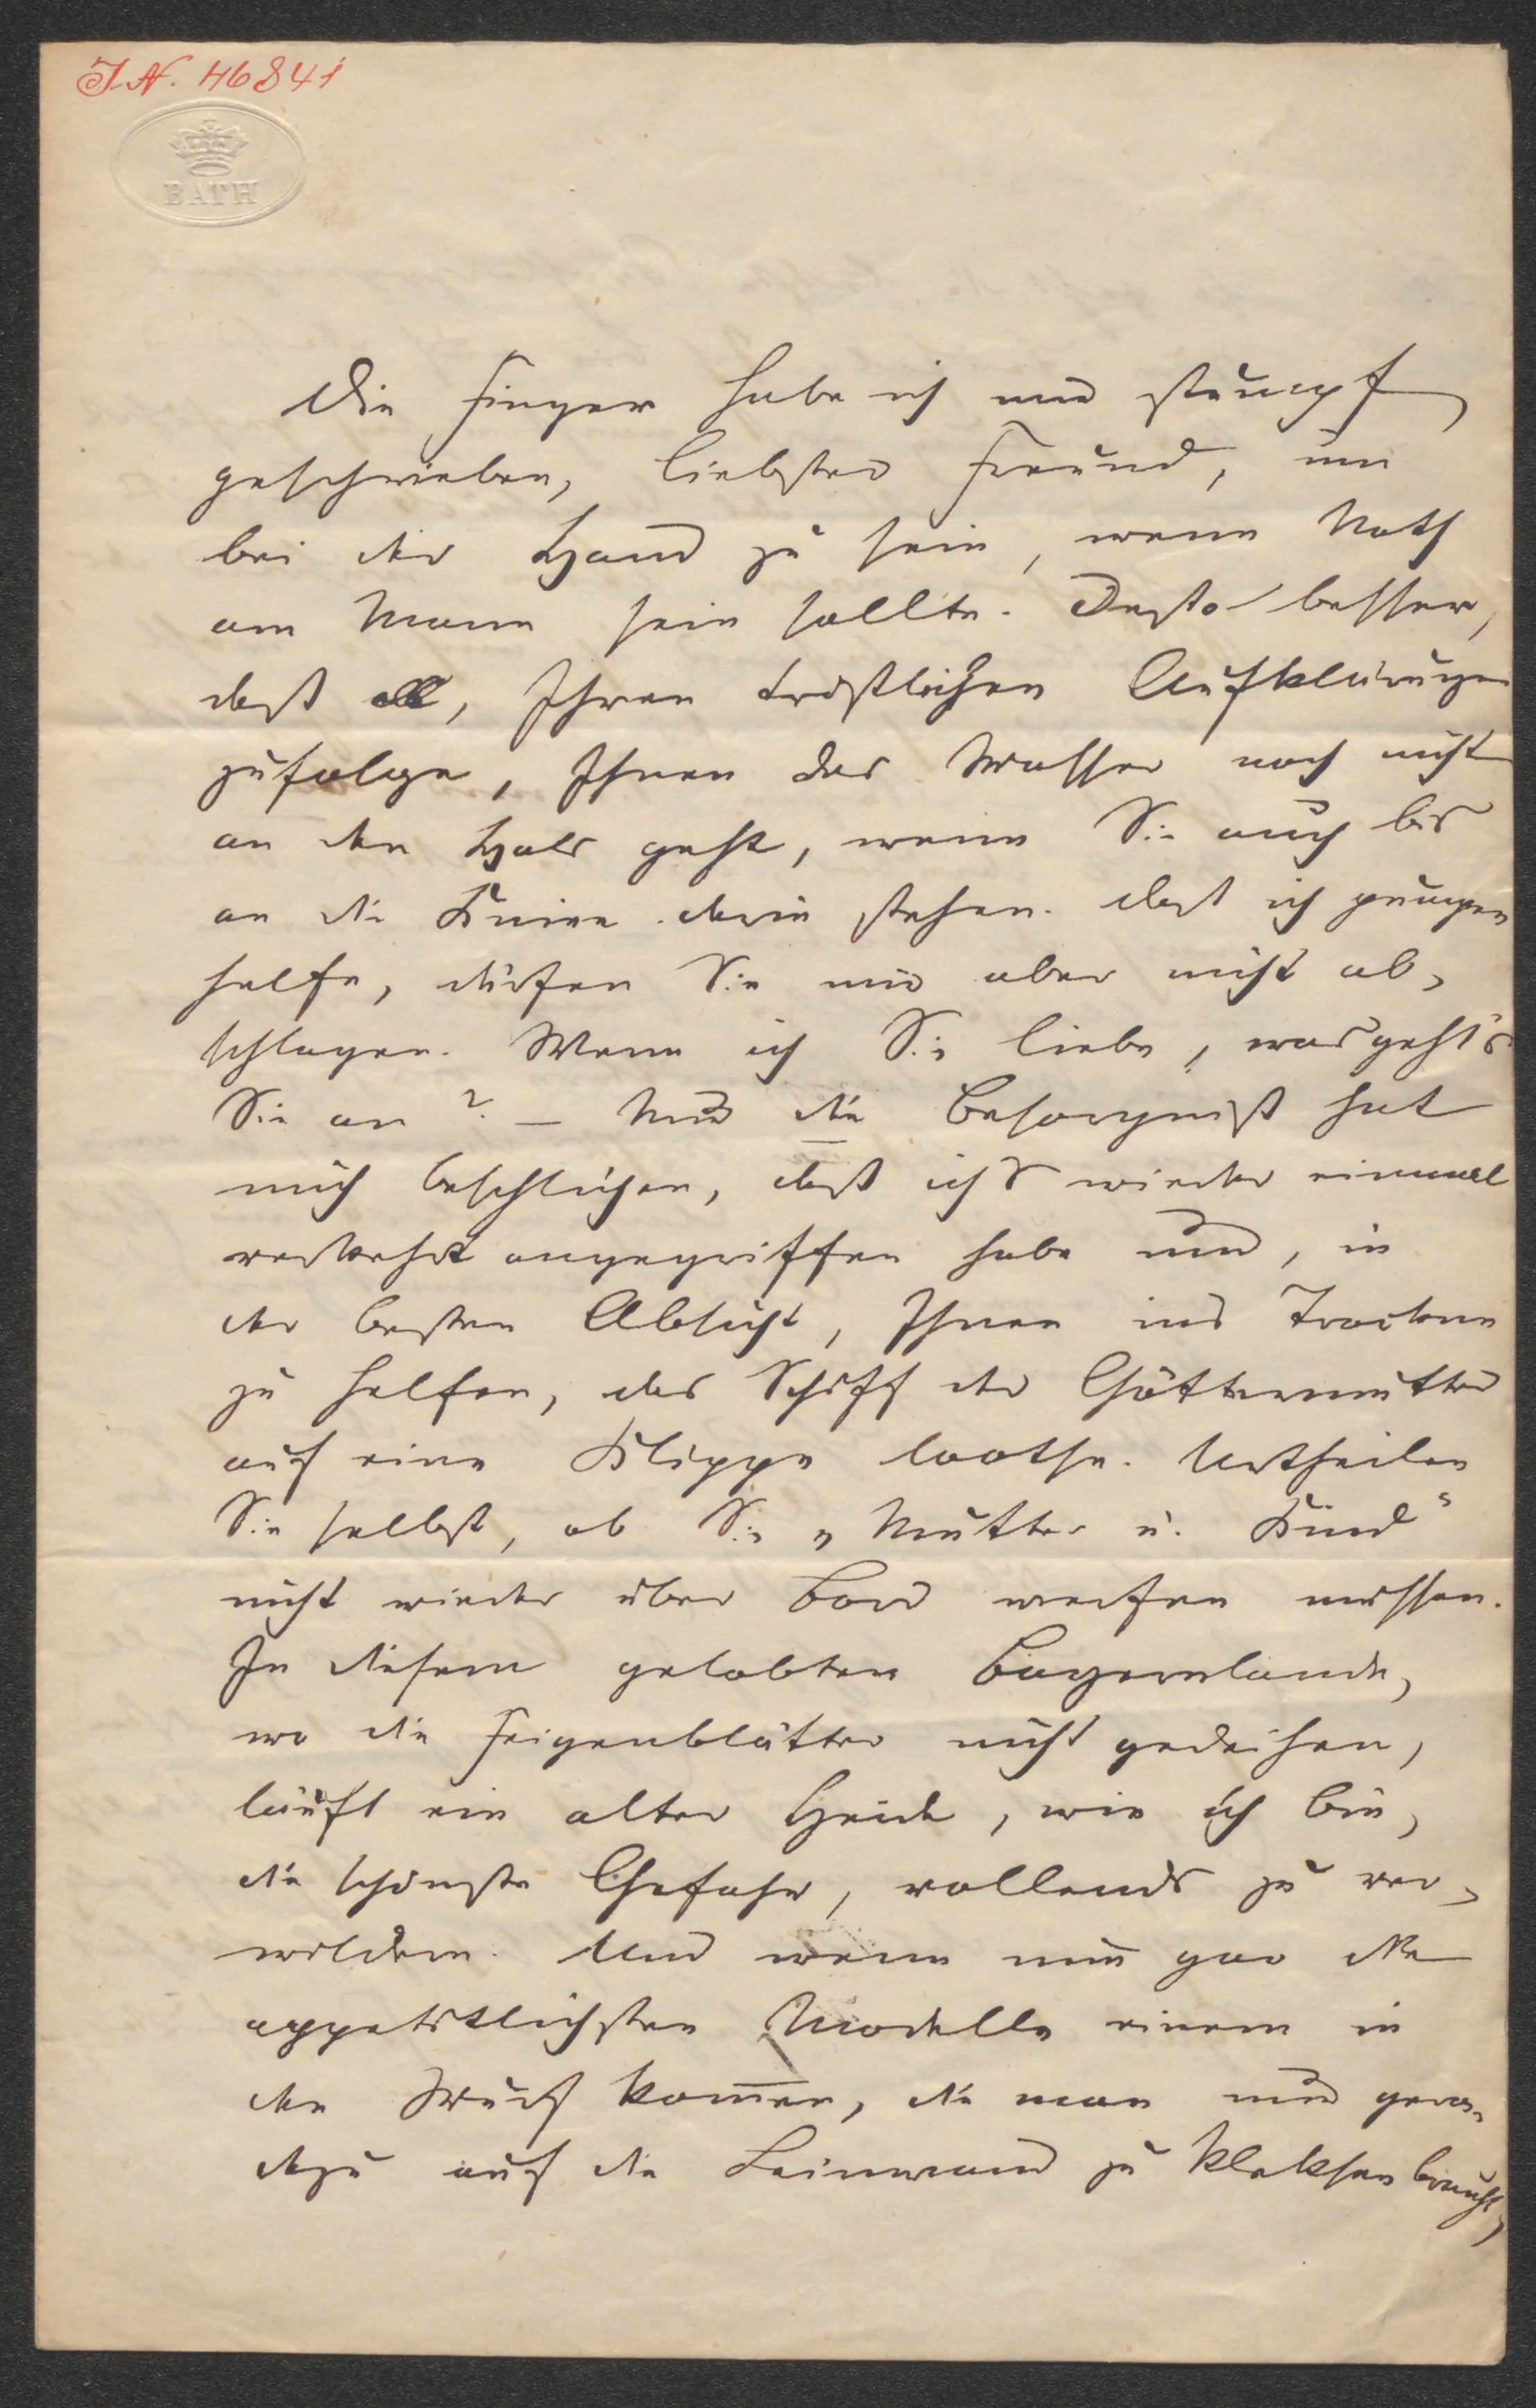 I.N. 46841
BATH
Die Finger habe ich mir stumpf
geschrieben, liebster Freund, um
bei der Hand zu sein, wenn Noth
am Mann sein sollte. Desto besser,
daß, Ihren tröstlichen Aufklärungen
zufolge, Ihnen das Wasser noch nicht
an den Hals geht, wenn Sie auch bis
an die Kniee darin stehen. Daß ich pumpen
helfe, dürfen Sie mir aber nicht ab-
schlagen. Wenn ich Sie liebe, was geht's
Sie an? – Nur die Besorgniß hat
mich beschlichen, daß ich's wieder einmal
verkehrt angegriffen habe und, in
der besten Absicht, Ihnen ins Trockene
zu helfen, das Schiff der Göttermutter
auf eine Klippe lootse. Urtheilen
Sie selbst, ob Sie „Mutter u. Kind"
nicht wieder über Bord werfen müssen.
In diesem gelobten Bayernlande,
wo die Feigenblätter nicht gedeihen,
läuft ein alter Heide, wie ich bin,
die schönste Gefahr, vollends zu ver-
wildern. Und wenn nun gar die
appetitlichsten Modelle einem in
den Wurf kom̄en, die man nur gera-
dezu auf die Leinwand zu kleksen braucht,